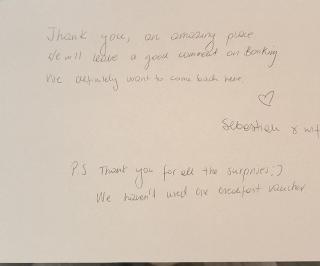 Thank you, an amazing place
We will leave a good comment on Booking
We definitely want to come back here
♡
Sebastian & wif
P.S Thank you for all the surprises ;)
We haven't used one breakfast voucher